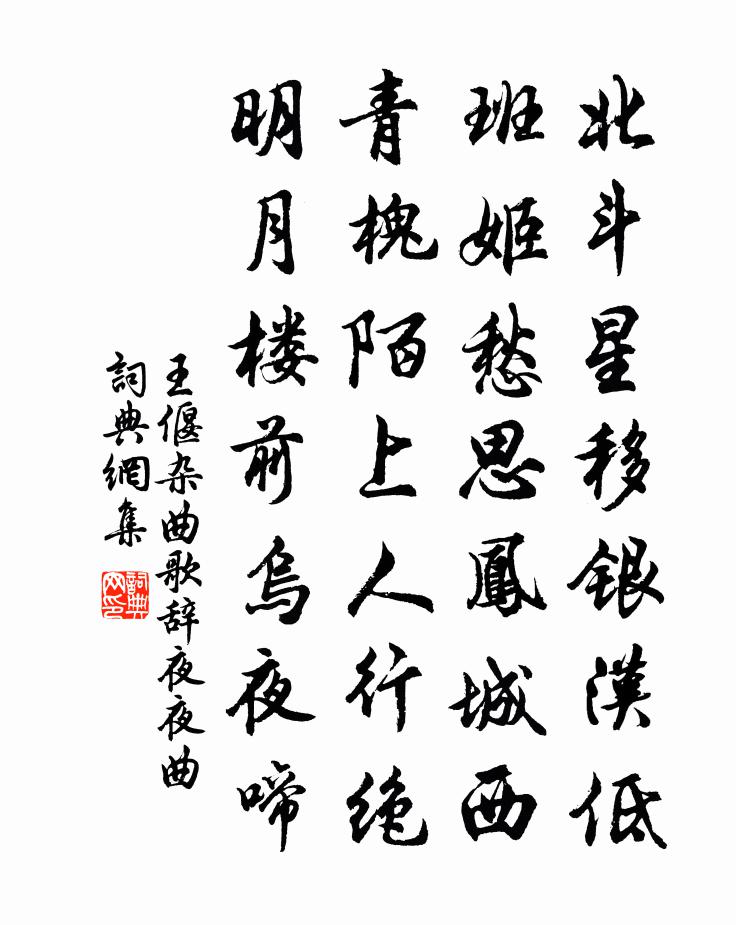 北斗星移銀漢低
班姬愁思鳳城西
青槐陌上人行绝
明月楼前烏夜啼
王偃杂曲歌辞夜夜曲
詞典網集
詞典网印